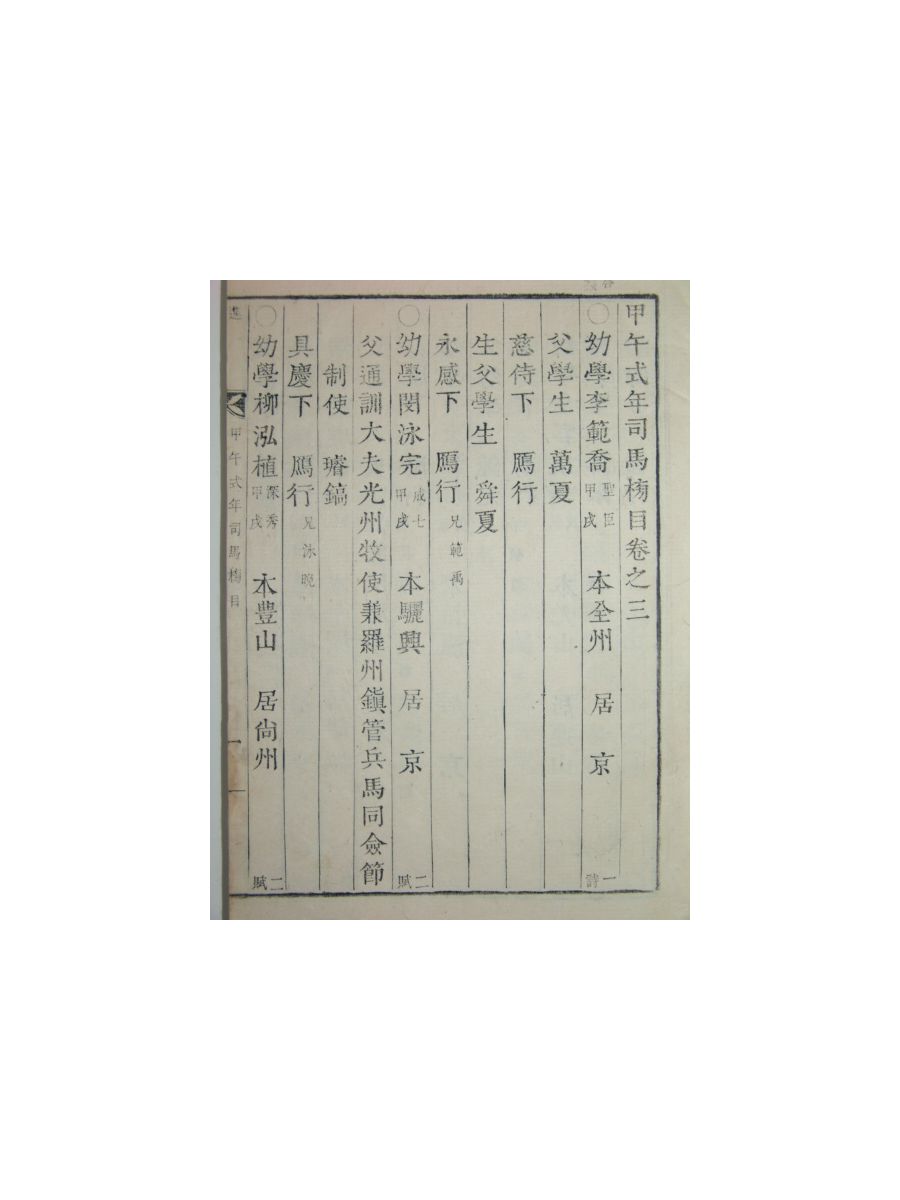 甲午式年司馬榜目卷之三
○幼學李範喬 聖臣 甲戌 本全州 居京 一詩
父學生 萬夏
慈侍下 鴈行
生父學生 舜夏
永感下 鴈行 兄範禹
○幼學閔泳完 成七 甲戌 本驪興 居京 二賦
父通訓大夫光州牧使兼羅州鎭管兵馬同僉節
制使 璿鎬
具慶下 鴈行 兄泳晩
○幼學柳泓植 深秀 甲戌 本豊山 居尙州 二賦
進 甲午式年司馬榜目 一